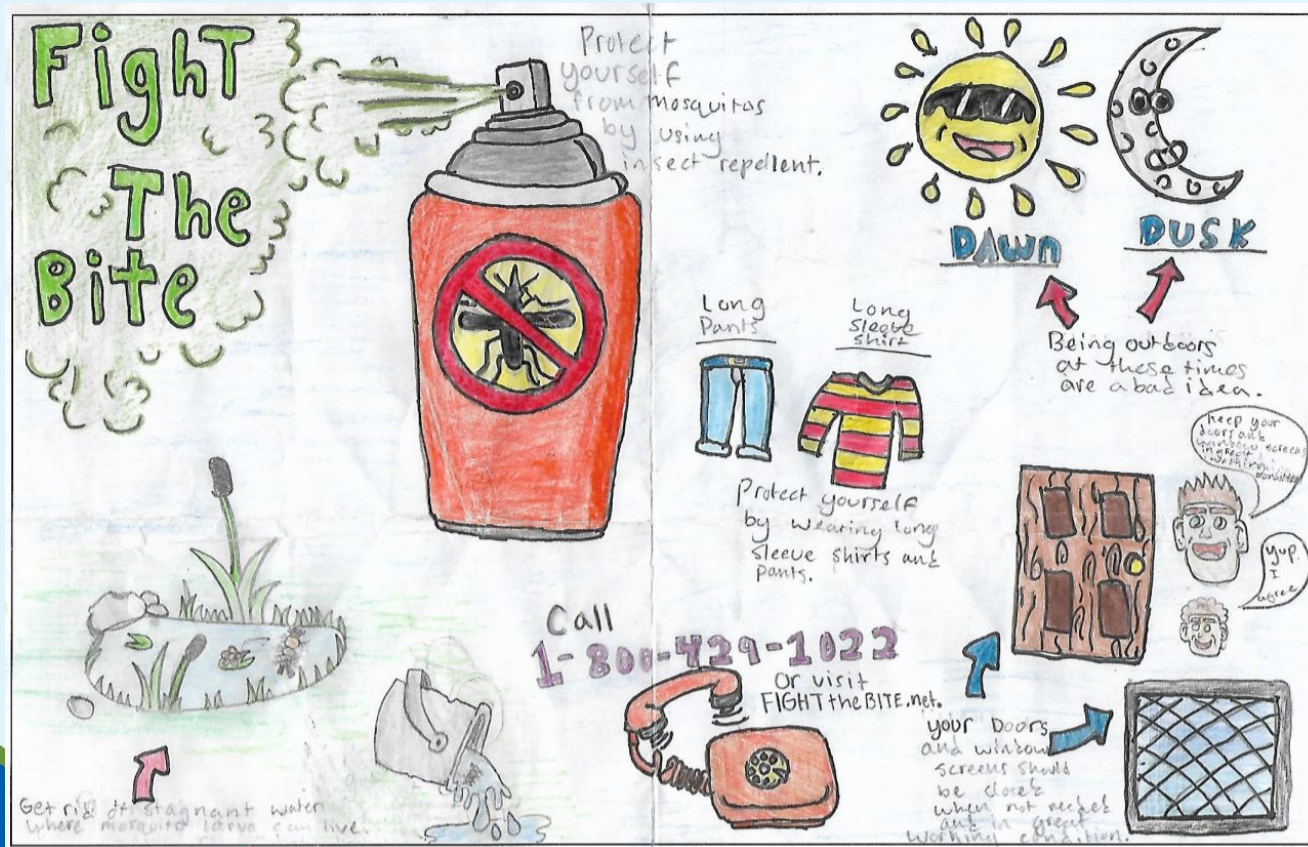 Fight
The
Bite
Protect
yourself
from mosquitos
by using
insect repellent.
DAWN
DUSK
Being outdoors
at these times
are a bad idea.
Long
Pants
Long
Sleeve
shirt
Protect yourself
by wearing long
sleeve shirts and
pants.
keep your
doors and
window screens
in great
working
condition
yup.
I
agree
Call
1-800-429-1022
Or visit
FIGHTtheBITE.net.
your Doors
and window
screens should
be closed
when not needed
and in great
working condition.
Get rid of stagnant water
where mosquito larva can live.